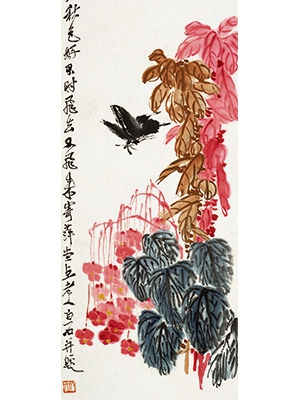 秋色好 不时飞去又飞来 寄萍堂上老人白石并题